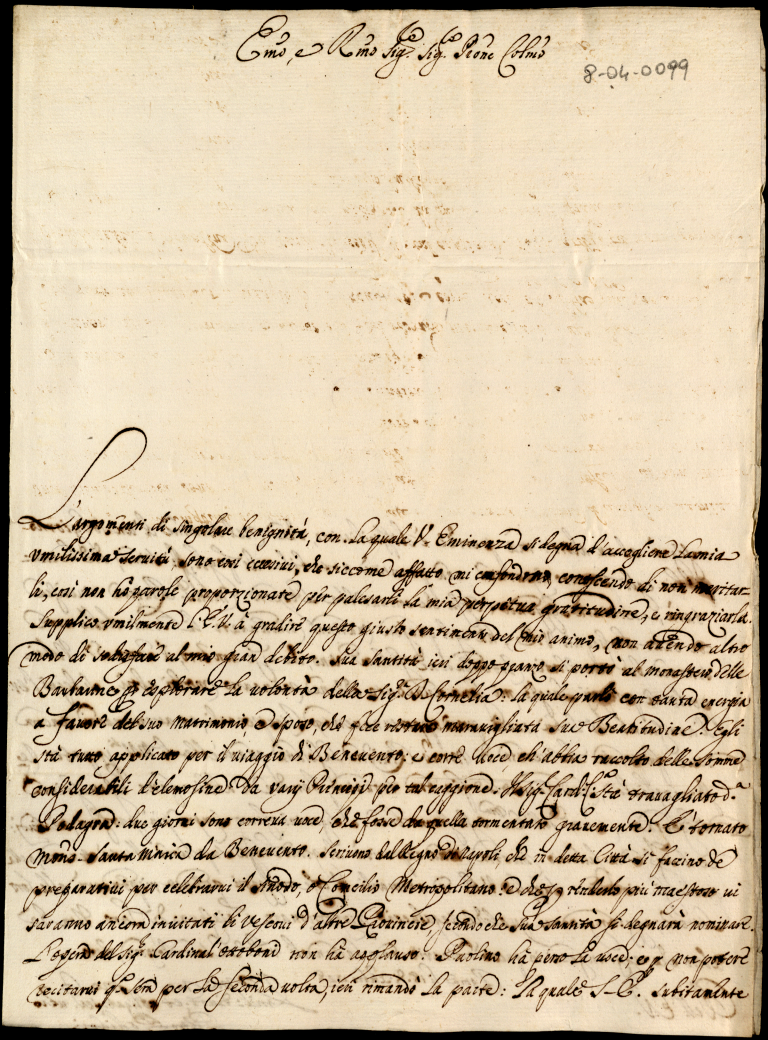 Emo, e Rmo Sig.re Sig.re Pròne Colmo
8-04-0099
L'argomenti di singolare benignità, con la quale V. Eminenza si degna d'accogliere la mia
umilissima servitù, sono così eccessivi, che siccome affatto mi confondono, conoscendo di non meritar-
li, così non hò parole proporzionate per palesarli la mia perpetua gratitudine, e ringraziarla.
Supplico umilmente l'E.V. à gradire questo giusto sentimento del mio animo, non avendo altro
modo di sodisfare al mio gran debito. Sua Santità ieri doppo pranzo si portò al monastero delle
Barbarine p esplorare la volontà della Sig.ra D. Cornelia: la quale parlò con tanta energia
a favore del suo matrimonio, e sposo, che fece restare maravigliata Sua Beatitudine. Egli
stà tutto applicato per il viaggio di Benevento; e corre voce ch'abbia raccolto delle somme
considerabili d'elemosine da varij Principi per tal cagione. Il Sig.r Card.l stà travagliato d.a
Podagra: due giorni sono correva voce, che fosse da quella tormentato gravemente. È tornato
Mons. Santa Maria da Benevento. Scrivono dal Regno di Napoli, che in detta Città si faccino de
preparativi per celebrarvi il Sinodo, o Concilio Metropolitano: e che p renderlo più maestoso vi
saranno ancora invitati li Vescovi d'altre Provincie, secondo che Sua Santità si degnarà nominare.
L'opera del Sig.r Cardinal' Ottoboni non hà applauso. Paolino hà perso la voce: e p non potere
recitarvi q.a sera per la seconda volta, ieri rimandò la parte: la quale S. E. subitamente